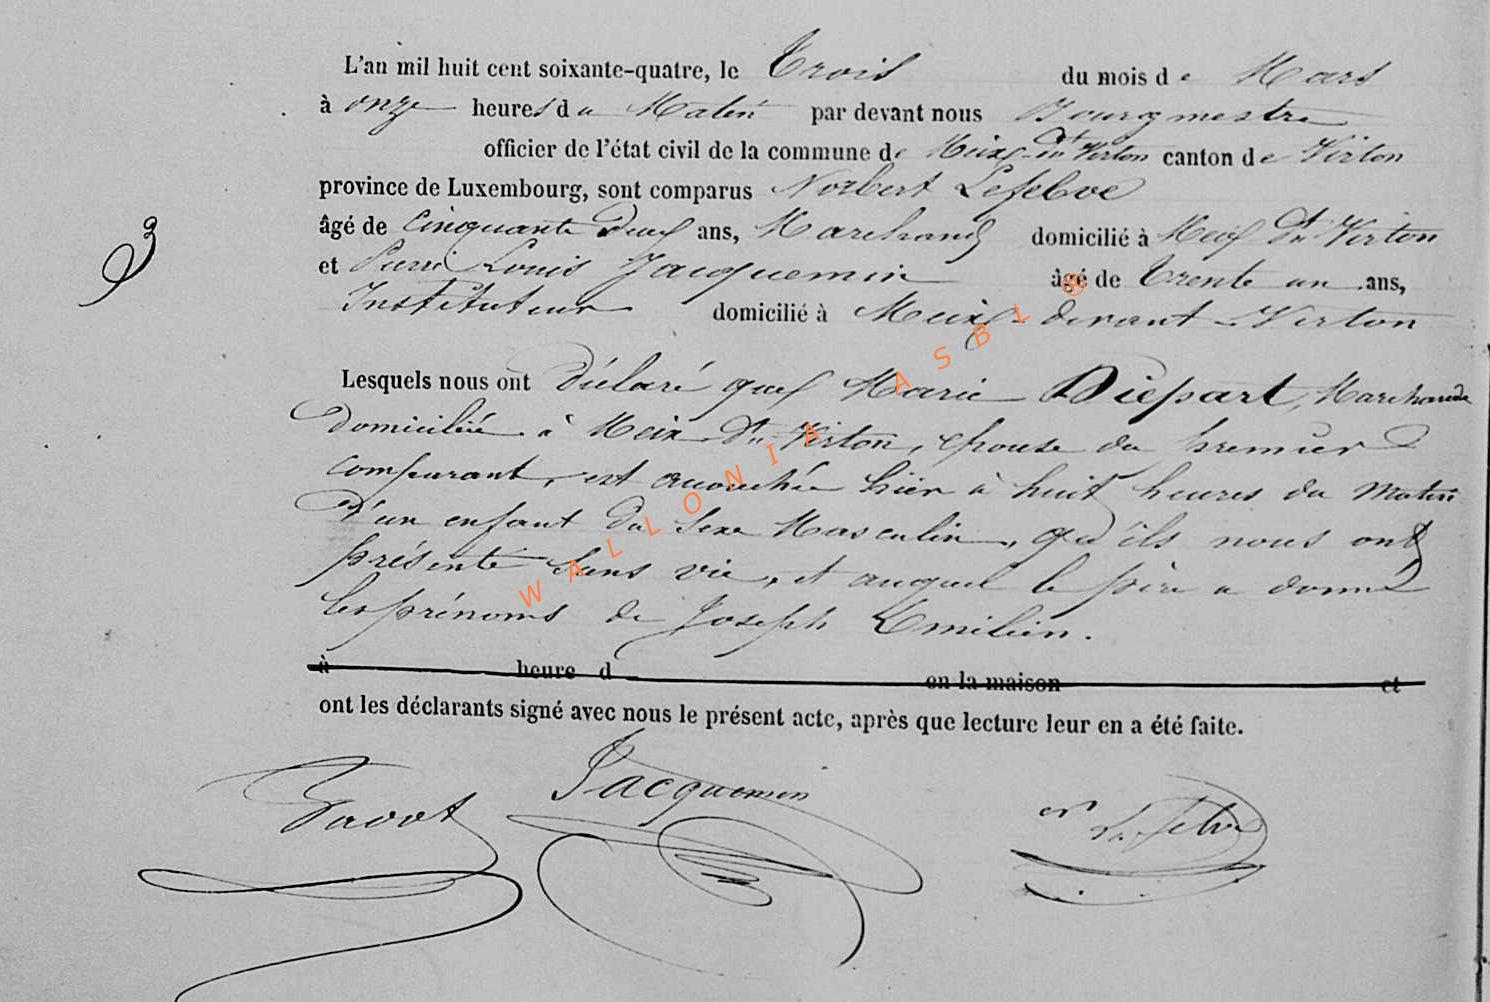 L'an mil huit cent soixante-quatre, le Trois du mois de Mars
à onze heures du Matin par devant nous Bourgmestre
officier de l'état civil de la commune de Meix-Dt Virton canton de Virton
province de Luxembourg, sont comparus Norbert Lefebve
âgé de Cinquante Deux ans, Marchand domicilié à Meix Dt Virton
et Pierre Louis Jacquemin âgé de Trente un ans,
Instituteur domicilié à Meix-devant-Virton
3
Lesquels nous ont Déclaré que Marie Diépart, Marchande
domiciliée à Meix Dt Virton, épouse du premier
comparant, est accouchée hier à huit heures du matin
D'un enfant du Sexe Masculin, qu'ils nous ont
présenté Sans vie, et auquel le père a donné
les prénoms de Joseph Emilien.
à heure d en la maison et
ont les déclarants signé avec nous le présent acte, après que lecture leur en a été faite.
Jacquemin
Lefebve
WALLONIA ASBL ©